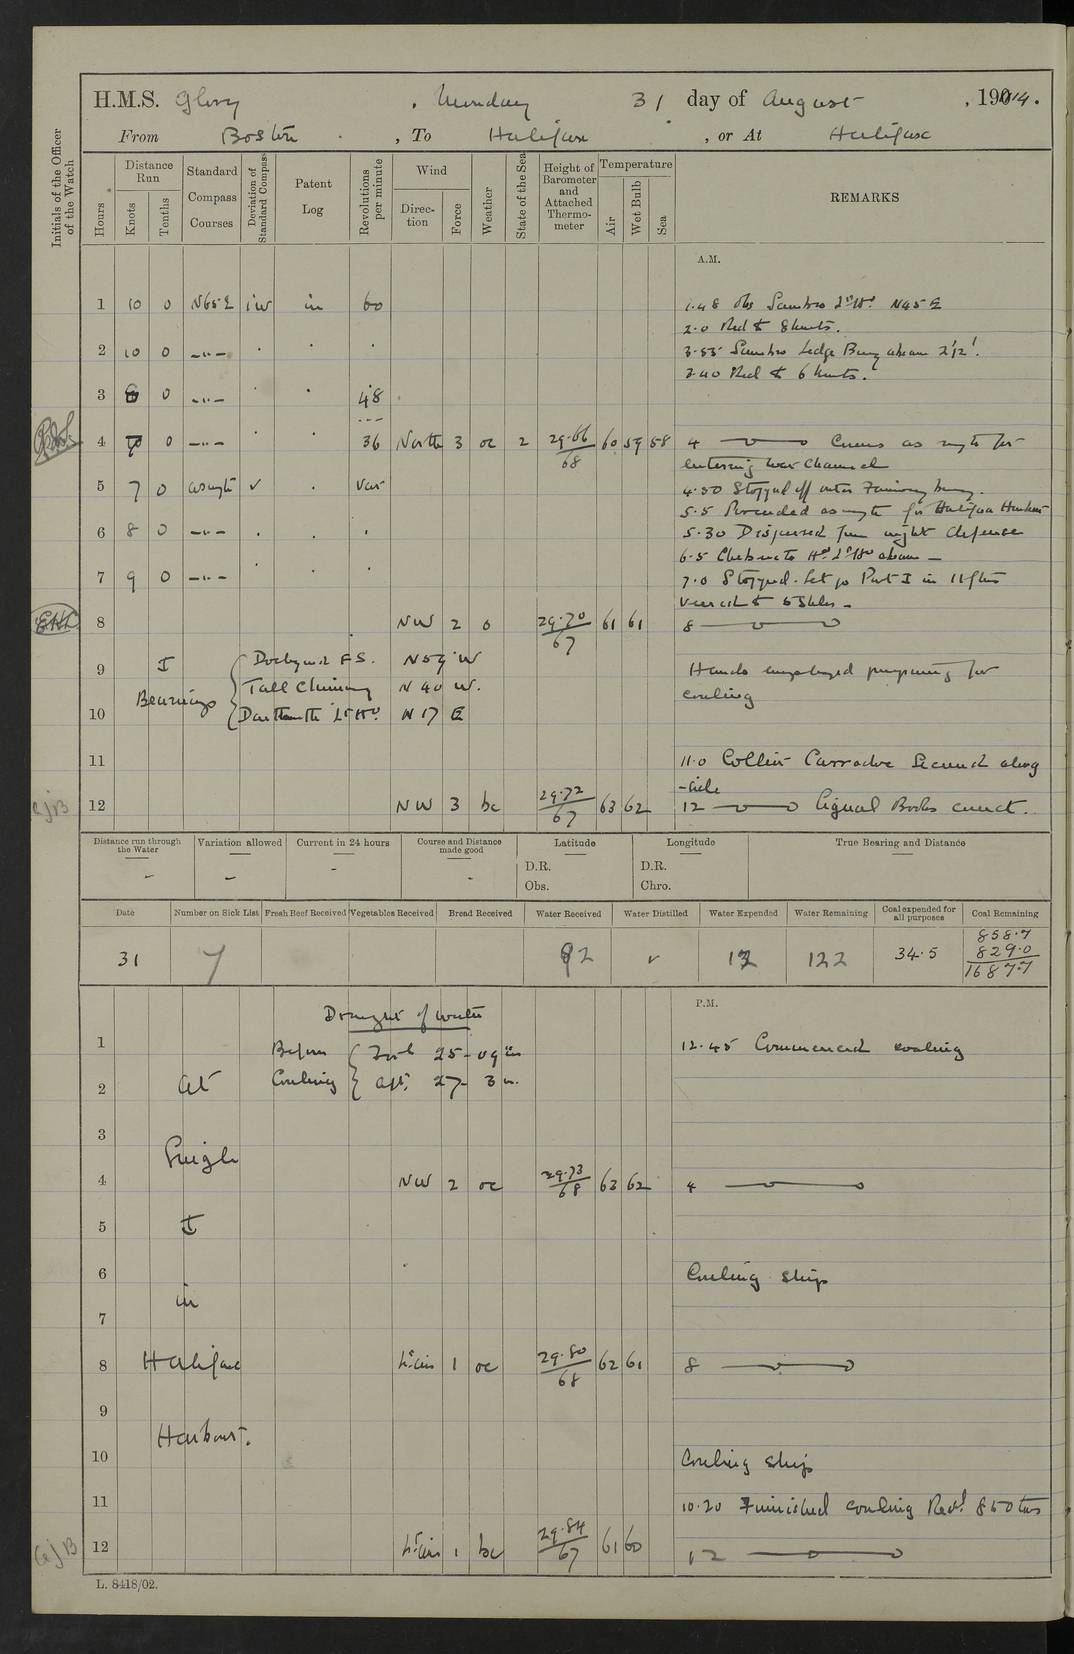 H.M.S. Glory, Monday 31 day of August, 1914.
From Boston, To Halifax, or At Halifax
Initials of the Officer of the Watch
Hours
Distance Run
Knots
Tenths
Standard Compass Courses
Deviation of Standard Compass
Patent Log
Revolutions per minute
Wind
Direction
Force
Weather
State of the Sea
Height of Barometer and Attached Thermometer
Temperature
Air
Wet Bulb
Sea
REMARKS
A.M.
1 10 0 N65E 1W in 60
1.48 Obs Sambro Lt Ho. N45E
2.0 Red to 8 knots.
2 10 0 -"-
3.35 Sambro Ledge Buoy abeam 2'/2'.
3.40 Red to 6 knots.
3 8 0 -"- 48
4 7 0 -"- 36 North 3 oc 2 29.66/68 60 59 58
4 Courses as reqte for
entering War Channel
5 7 0 as reqte ✓ Var
4.50 Stopped off outer Fairway buoy.
5.5 Proceeded as reqte for Halifax Harbour
6 8 0 -"-
5.30 Dispersed from night defence
6.5 Chebucto Hd Lt Ho abeam
7 9 0 -"-
7.0 Stopped. Let go Port I in 11 fms
Veered to 5 Shkls
8 NW 2 o 29.70/67 61 61
8
9 I Bearings { Dockyard F.S. N59W
Tall Chimney N40W.
10 Dartmouth Lt Ho N17E
Hands employed preparing for
coaling
11
11.0 Collier Carradoc Secured along
-side
12 NW 3 bc 29.72/67 63 62
12 Signal Books correct.
Distance run through the Water
Variation allowed
Current in 24 hours
Course and Distance made good
Latitude
D.R.
Obs.
Longitude
D.R.
Chro.
True Bearing and Distance
Date
Number on Sick List
Fresh Beef Received
Vegetables Received
Bread Received
Water Received
Water Distilled
Water Expended
Water Remaining
Coal expended for all purposes
Coal Remaining
31 7 92 ✓ 122 34.5
858.7
829.0
1687.7
P.M.
Draught of water
Before Coaling { Ford 25-09 ins
aft. 27 3 in.
1
12.45 Commenced coaling
2 At
3 Single
4 NW 2 oc 29.73/68 63 62
4
5 I
6 in
Coaling ship
7
8 Halifax Lt airs 1 oc 29.80/68 62 61
8
9 Harbour.
10
Coaling ship
11
10.20 Finished coaling Recd 850 tons
12 Lt airs 1 bc 29.84/67 61 60
12
L. 8418/02.